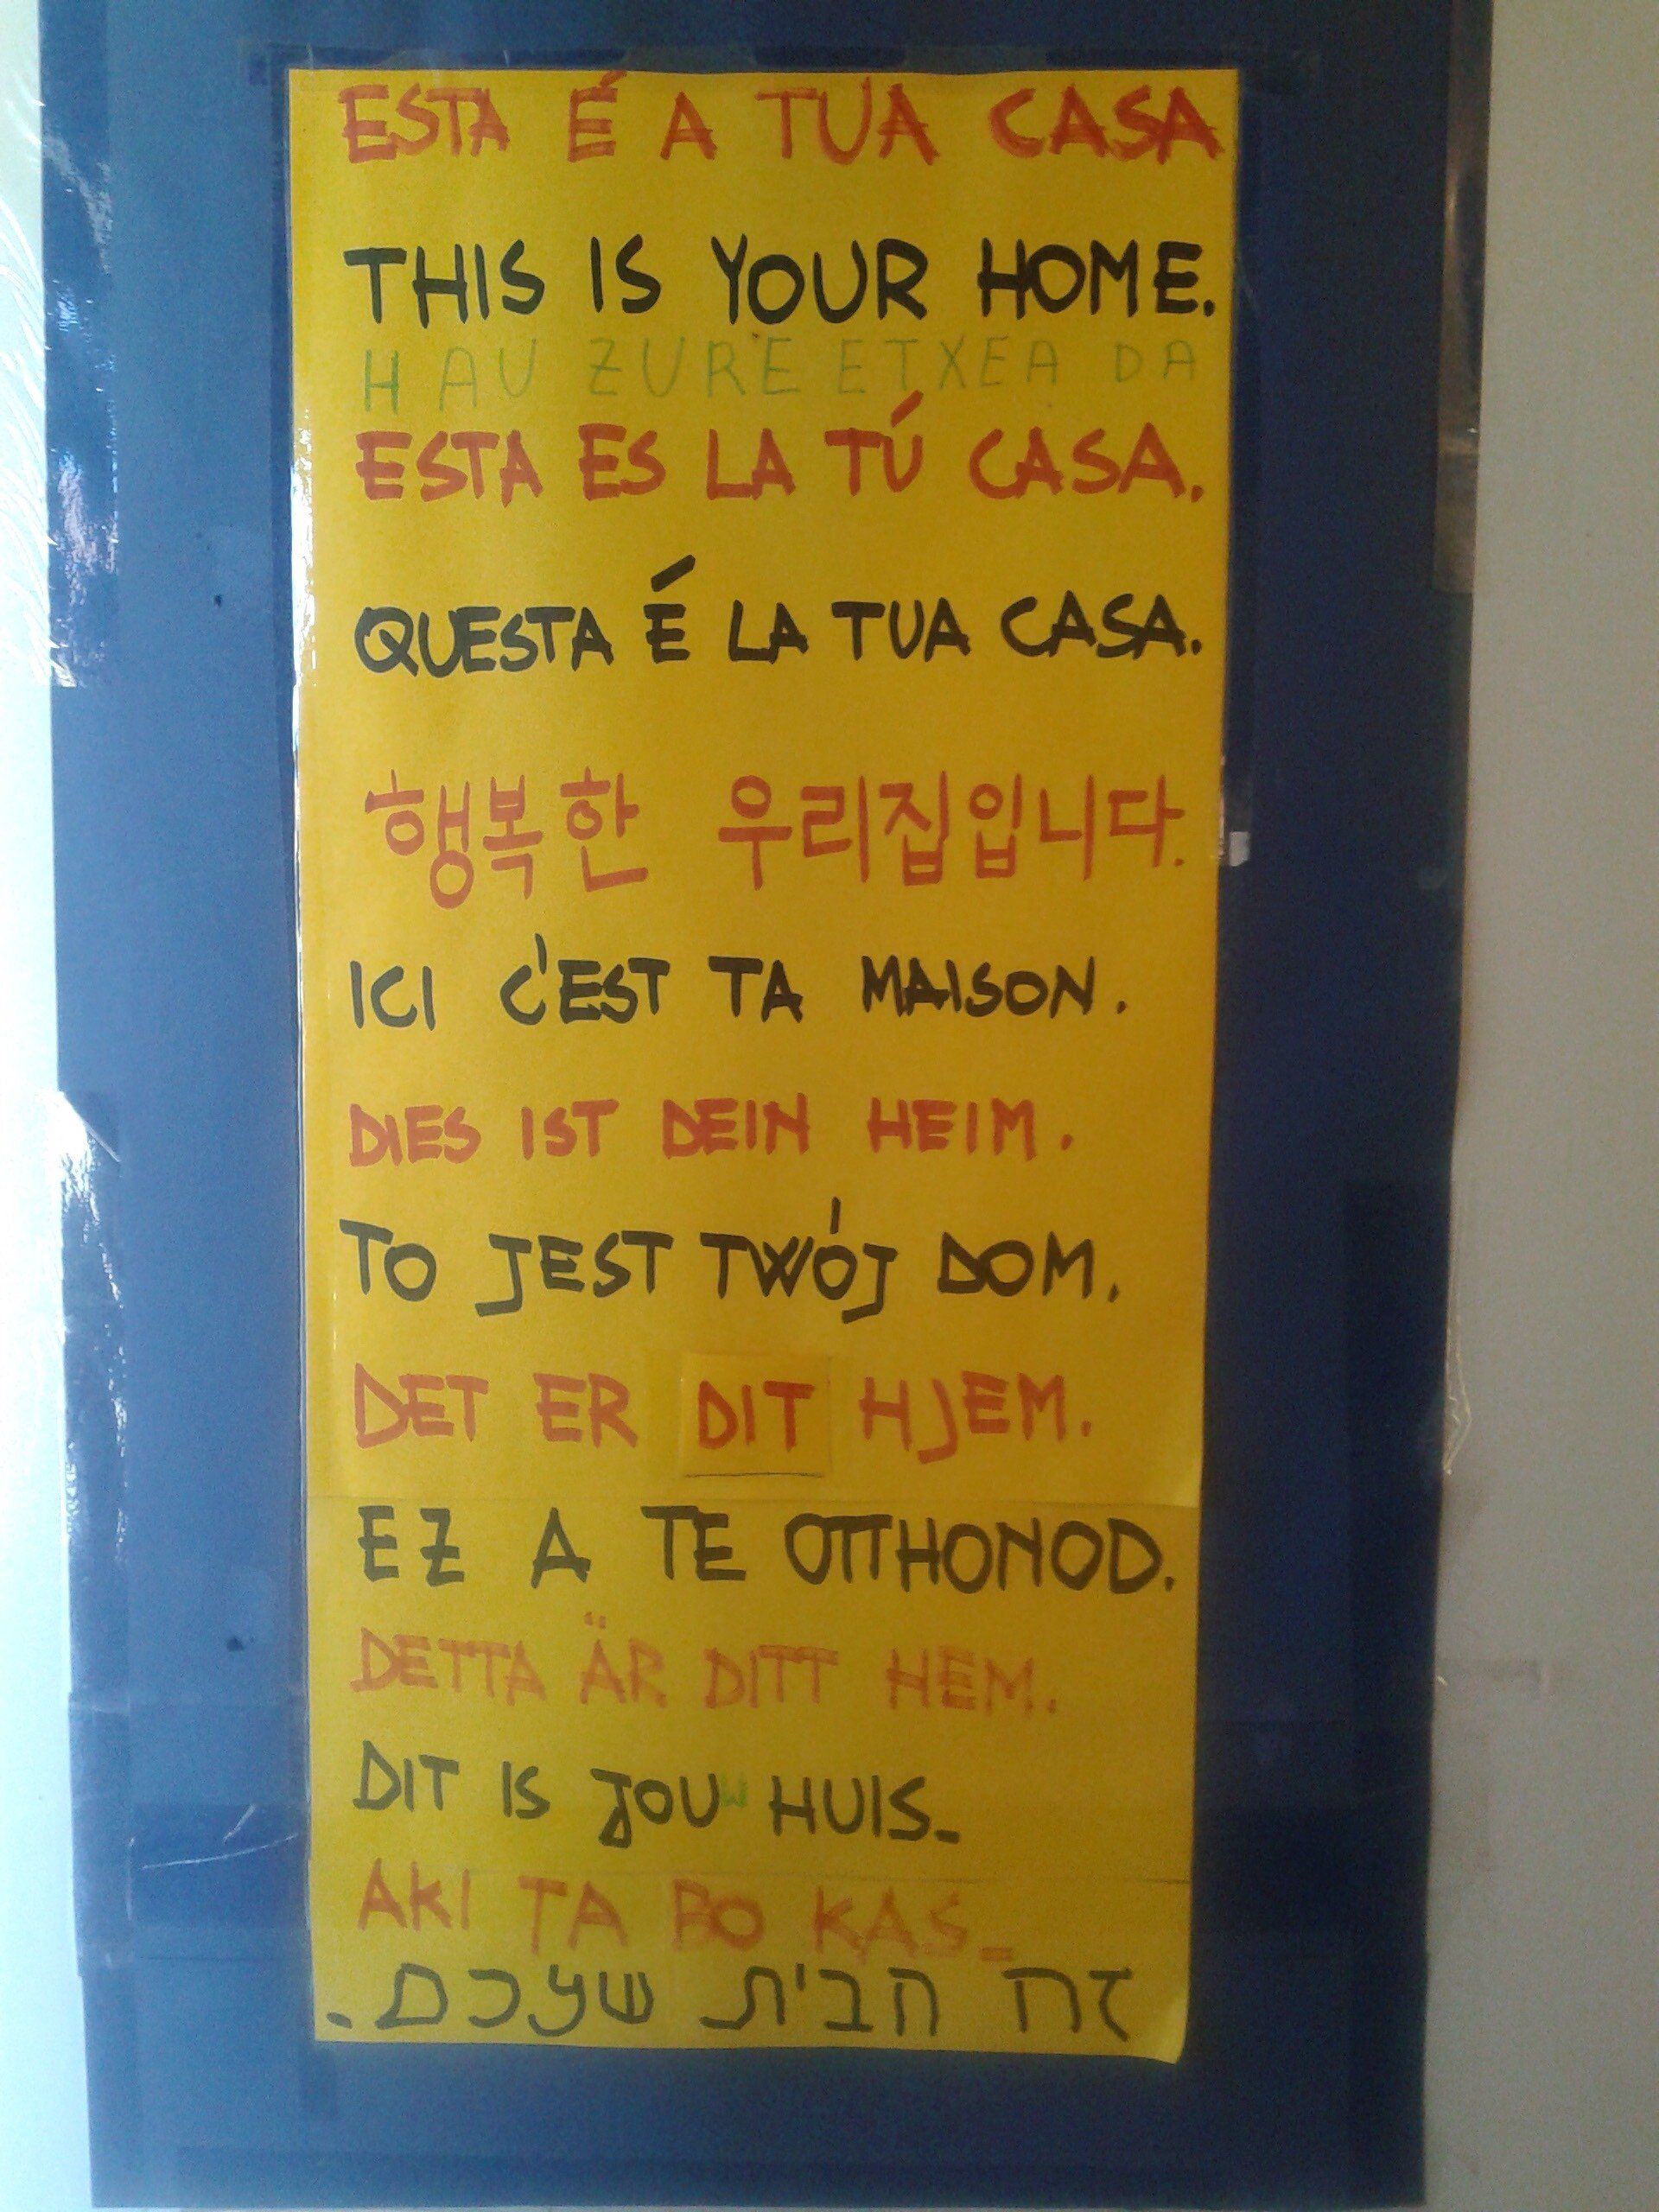 ESTA É A TUA CASA
THIS IS YOUR HOME.
HAU ZURE ETXEA DA
ESTA ES LA TÚ CASA.
QUESTA É LA TUA CASA.
행복한 우리집입니다.
ICI C'EST TA MAISON.
DIES IST DEIN HEIM.
TO JEST TWÓJ DOM.
DET ER DIT HJEM.
EZ A TE OTTHONOD.
DETTA ÄR DITT HEM.
DIT IS JOUW HUIS_
AKI TA BO KAS_
זה הבית שלכם.